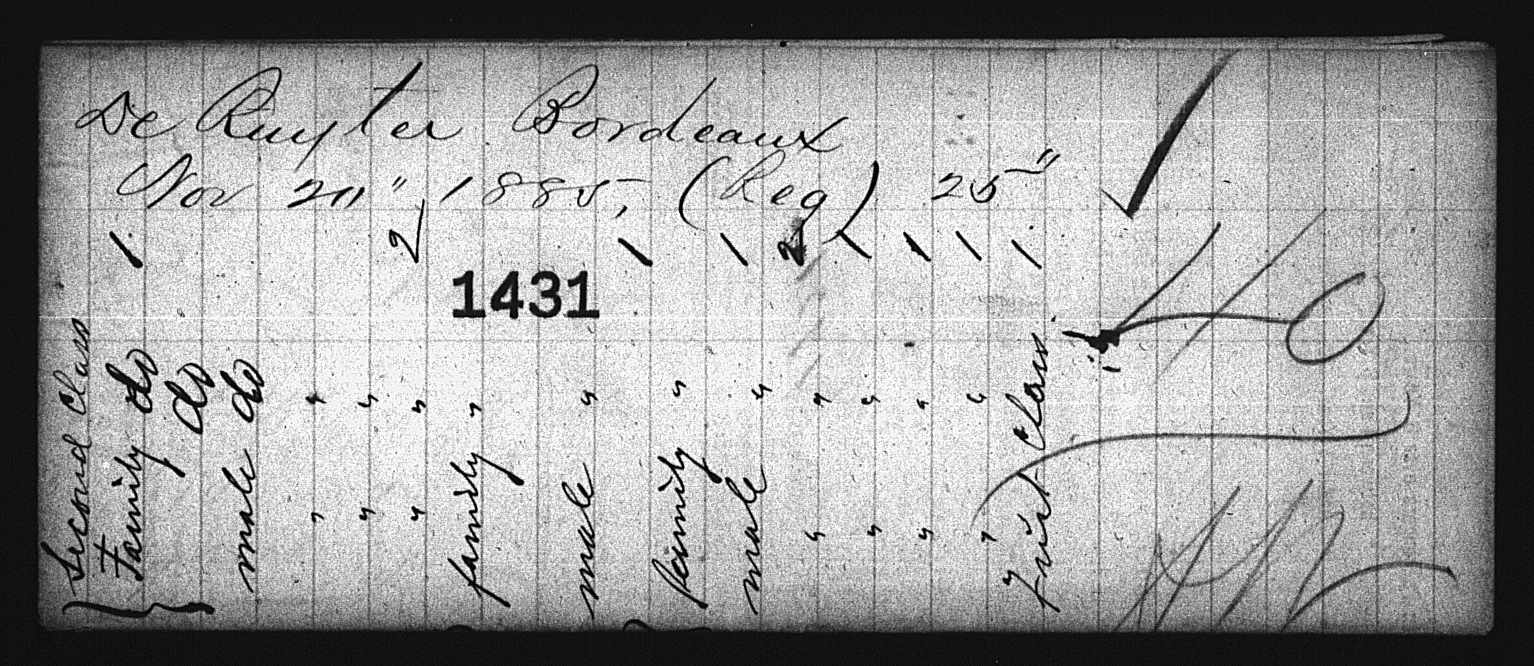 De Ruyter Bordeaux
Nov 20" 1885, (Reg) 25"
1 2 1 1 2 1 1 1 1
1431
Second Class
Family do
do
male do
" "
" "
" "
family "
male "
family "
male "
" "
" "
" "
" "
First Class
40